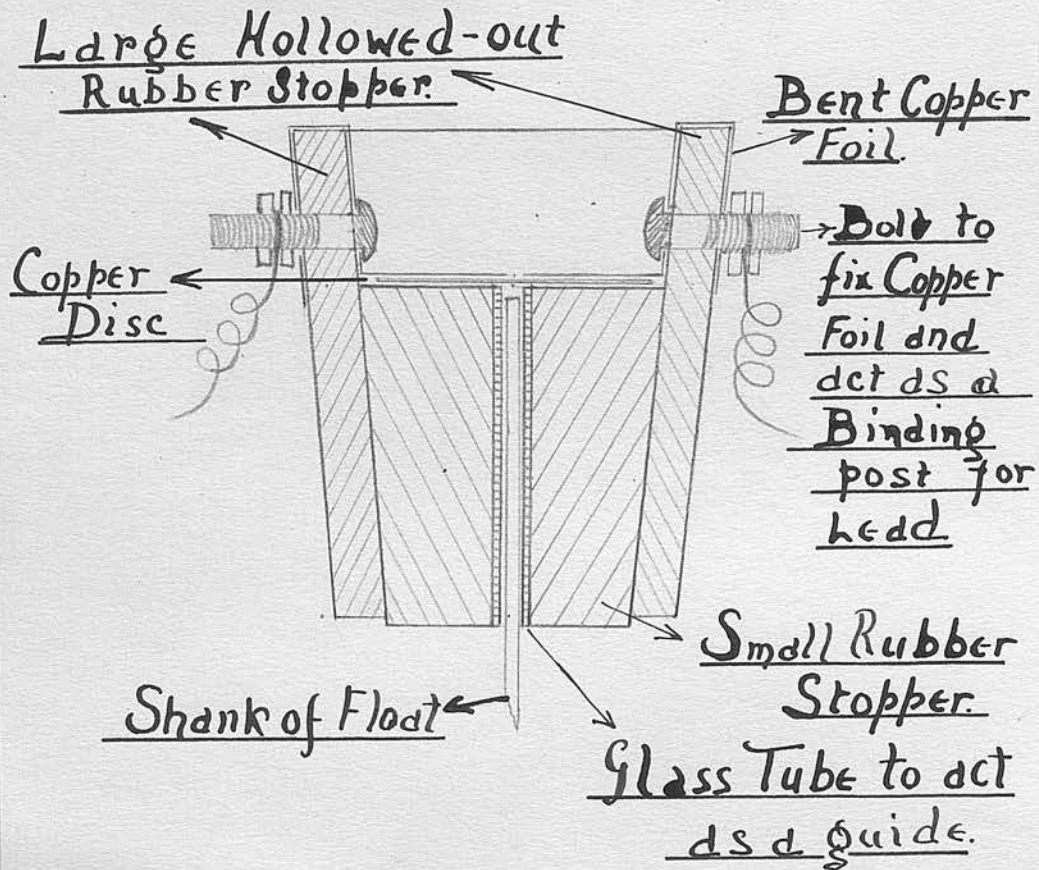 Large Hollowed-out
Rubber Stopper.
Bent Copper
Foil.
Bolt to
fix Copper
Foil and
act as a
Binding
post for
Lead
Copper
Disc
Small Rubber
Stopper.
Shank of Float
Glass Tube to act
as a guide.